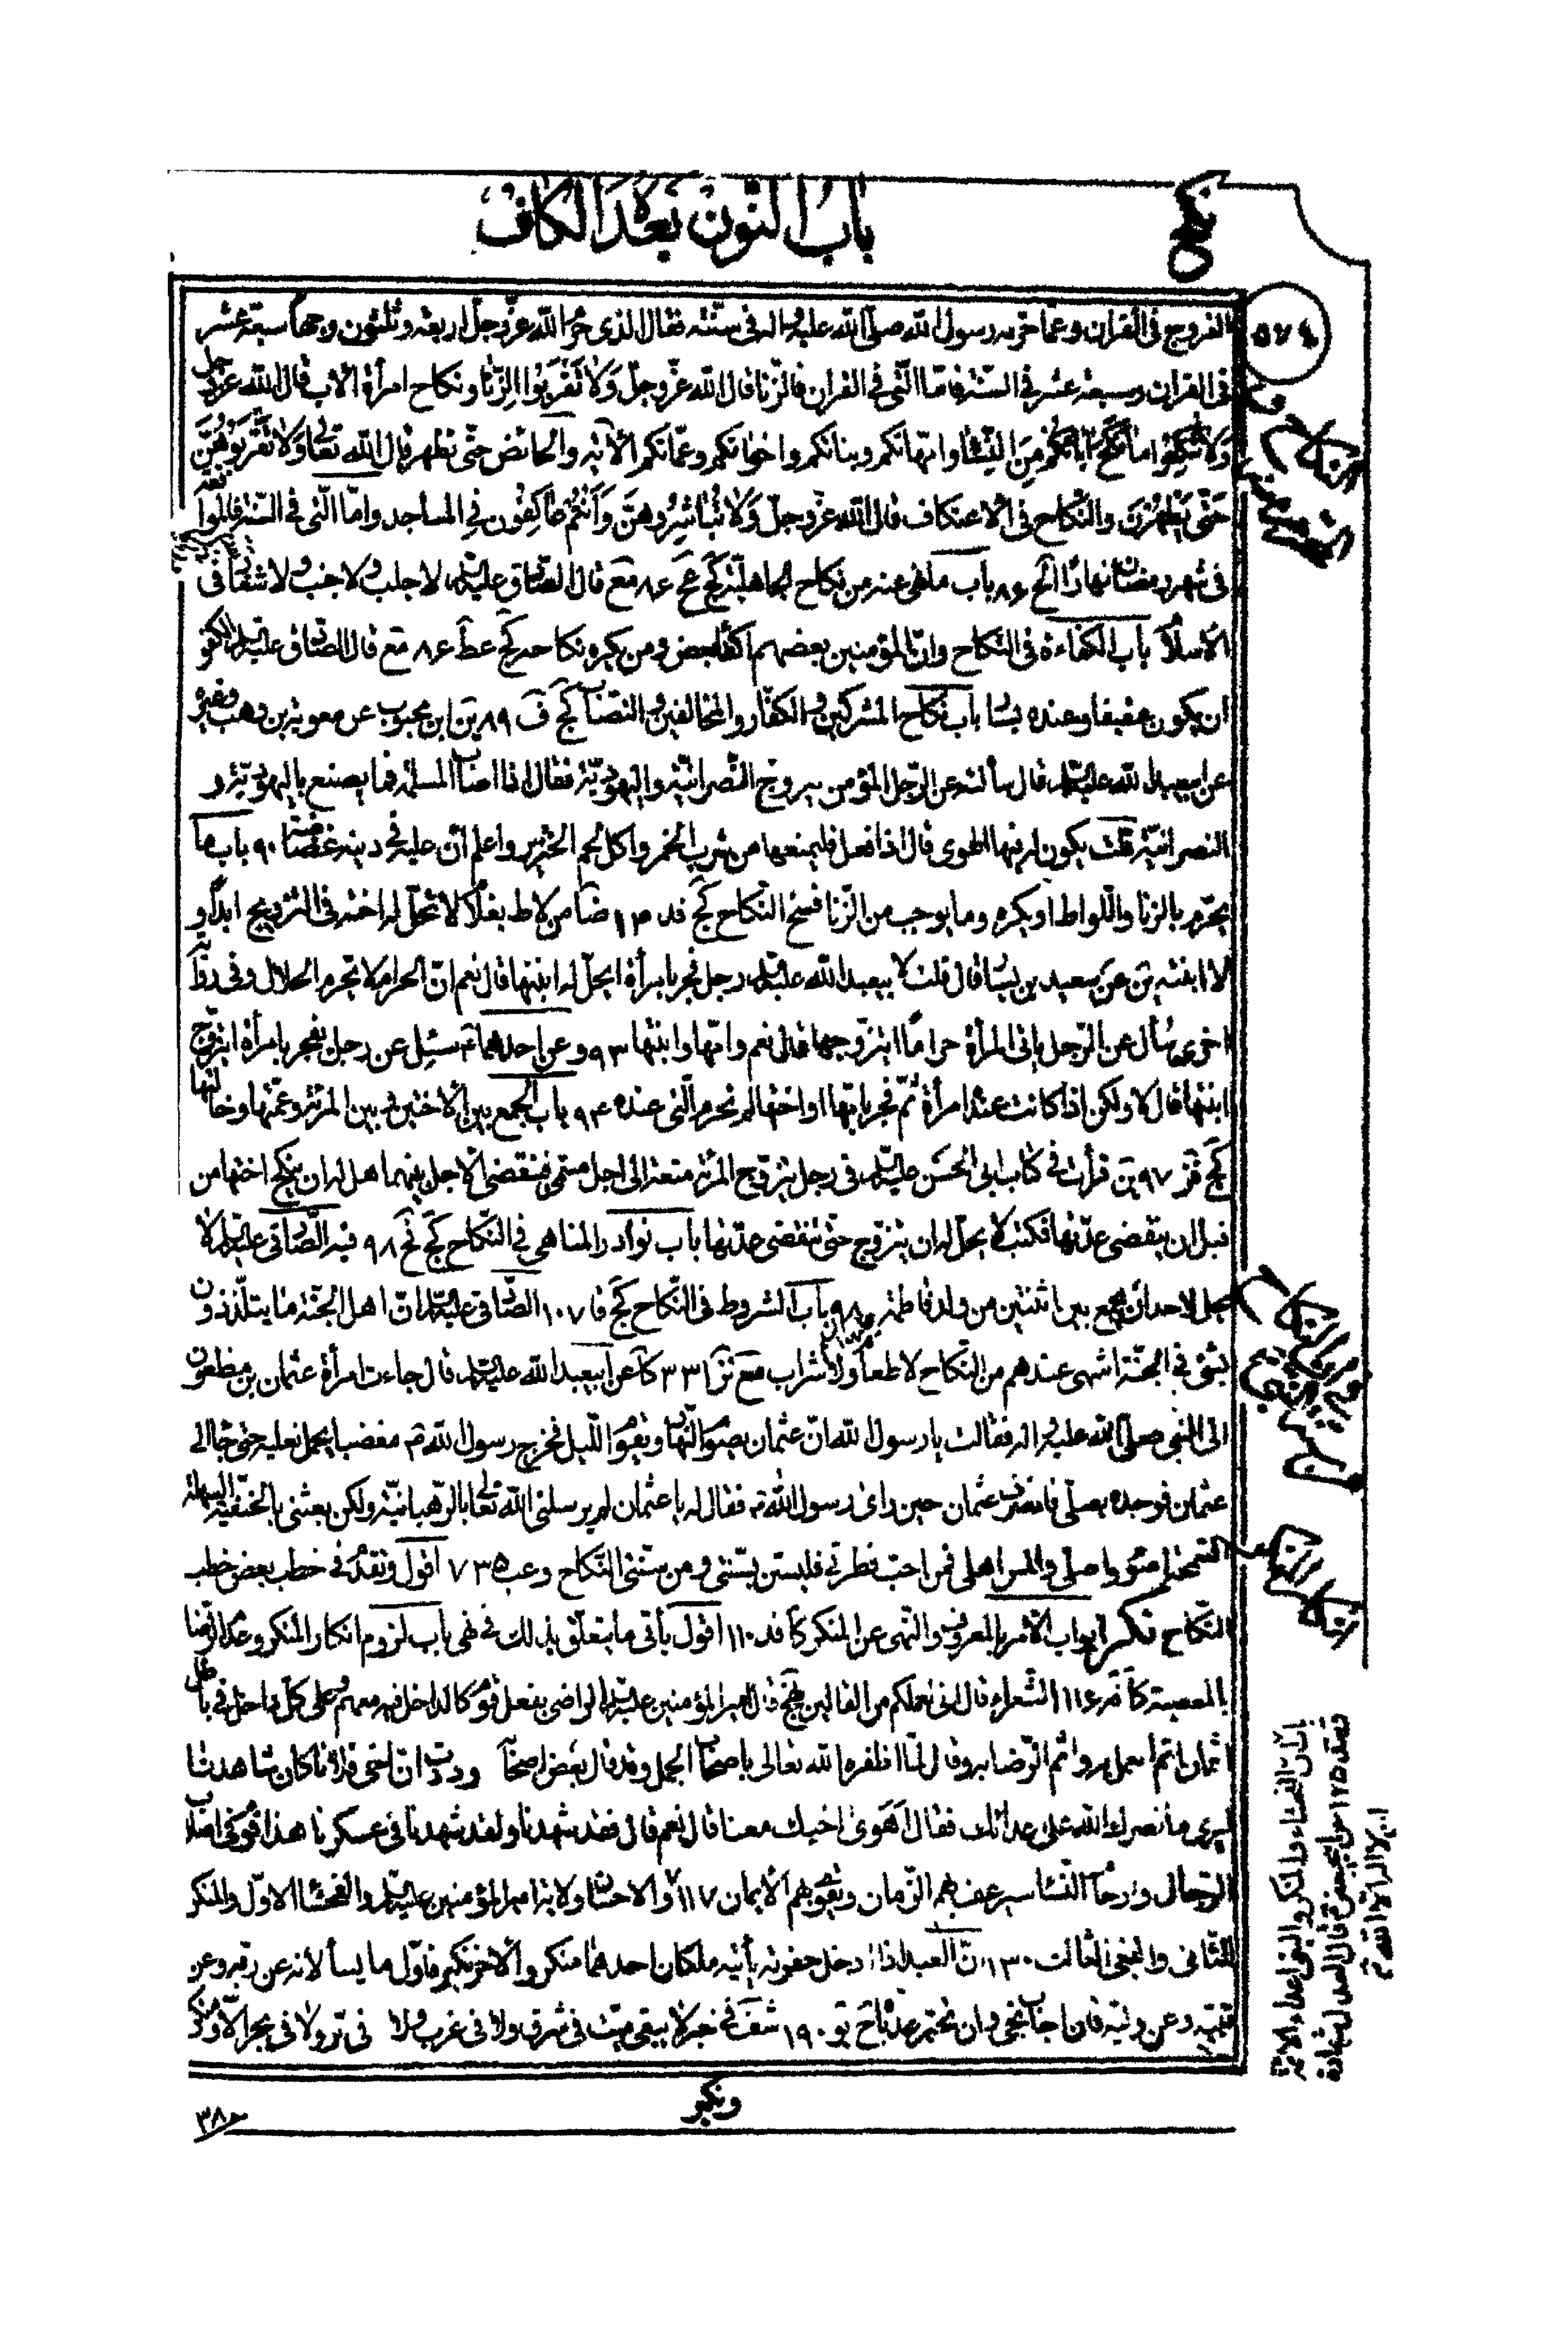 باب النون بعده الكاف
نكح
٥٧٤
الفروج فى القران وعمّا حرّمه رسول الله صلّى الله عليه واله فى سنّته فقال الذى حرّم الله عزّ وجلّ اربعة وثلثون وجهاً سبعة عشر
فى القران وسبعة عشر فى السّنّة فامّا الّتى فى القران فالزّنا قال الله عزّ وجلّ وَلا تَقْرَبُوا الزِّنا ونكاح امرأة الاب قال الله عزّ وجلّ
وَلا تَنْكِحُوا ما نَكَحَ آباؤُكُمْ مِنَ النِّساءِ وامّهاتكم وبناتكم واخواتكم وعمّاتكم الاية والحائض حتّى تطهر قال الله تعالى وَلا تَقْرَبُوهُنَّ
حَتّى يَطْهُرْنَ والنّكاح فى الاعتكاف قال الله عزّ وجلّ وَلا تُباشِرُوهُنَّ وَأَنْتُمْ عاكِفُونَ فِى المساجد وامّا الّتى فى السّنّة فالمواقعة
فى شهر رمضان نهاراً الخ ٨۶ باب ما نهى عنه من نكاح الجاهليّة كج عح ٨۶ مع قال الصّادق عليه السّلم لا جلب ولا جنب ولا شغار فى
الاسلام باب الكفاءة فى النّكاح وانّ المؤمنين بعضهم اكفاء بعض ومن يكره نكاحه كج عط ٨۶ مع قال الصّادق عليه السّلم الكفو
ان يكون عفيفا وعنده يسار باب نكاح المشركين والكفّار والمخالفين والنصّاب كج ف ٨٩ ين ابن محبوب عن معوية بن وهب وغيره
عن ابيعبد الله عليه السّلم قال سألته عن الرّجل المؤمن يتزوّج النّصرانيّة واليهوديّة فقال اذا اصاب المسلمة فما يصنع باليهوديّة و
النصرانيّة قلت يكون له فيها الهوى قال اذا فعل فليمنعها من شرب الخمر واكل لحم الخنزير واعلم انّ عليه فى دينه غضاضة ٩٠ باب ما
يحرّم بالزنا واللّواط او يكره وما يوجب من الزّنا فسخ النّكاح كج فد ضا من لاط بغلام لا تحلّ له اخته فى التزويج ابداً و
لا ابنته ين عن سعيد بن يسار قال قلت لابيعبد الله عليه السّلم رجل فجر بامرأة ايحلّ له ابنتها قال نعم انّ الحرام لا يحرم الحلال وفى رواية
اخرى سأل عن الرّجل ياتى المرأة حراماً ايتزوّجها قال نعم وامّها وابنتها ٩٣ وعن احدهما ع سئل عن رجل يفجر بامرأة ايتزوّج
ابنتها قال لا ولكن اذا كانت عنده امرأة ثمّ فجر بامّها او اختها لم تحرم الّتى عنده ٩۴ باب الجمع بين الاختين وبين المرئة وعمّتها وخالتها
كج فز ٩٧ ين قرأت فى كتاب ابى الحسن عليه السّلم فى رجل تزوّج المرئة متعة الى اجل مسمّى فينقضى الاجل بينهما هل له ان ينكح اختها من
قبل ان ينقضى عدّتها فكتب لا يحلّ له ان يتزوّج حتّى تنقضى عدّتها باب نوادر المناهى فى النّكاح كج فح ٩٨ فيه الصّادق عليه السّلم لا
يحلّ لاحد ان يجمع بين اثنتين من ولد فاطمة ٩٨ باب الشروط فى النّكاح كج قا ١٠٧ الصّادق عليه السّلم انّ اهل الجنّة ما يتلذّذون
بشئ فى الجنّة اشهى عندهم من النّكاح لا طعام ولا شراب مع نز ٣٣١ كا عن ابيعبد الله عليه السّلم قال جاءت امرأة عثمان بن مظعون
الى النّبى صلّى الله عليه واله فقالت يا رسول الله انّ عثمان يصوم النّهار ويقوم اللّيل فخرج رسول الله ص مغضبا يحمل نعليه حتى جاء الى
عثمان فوجده يصلّى فانصرف عثمان حين راى رسول الله ص فقال له يا عثمان لم يرسلنى الله تعالى بالرّهبانيّة ولكن بعثنى بالحنفيّة السهلة
السّمحة اصوم واصلّى والمس اهلى فمن احبّ فطرتى فليستنّ بسنّتى ومن سنّتى النّكاح وعب ٧٣٥ اقول وتقدّم فى خطب بعض خطب
النّكاح نكر ابواب الامر بالمعروف والنّهى عن المنكر كا فد ١١٠ اقول يأتى ما يتعلّق بذلك فى نهى باب لزوم انكار المنكر وعدم الرّضا
بالمعصية كا ١١۶ الشّعراء قال انّى لعملكم من القالين نهج قال امير المؤمنين عليه السّلم الراضى بفعل قوم كالداخل فيه معهم وعلى كلّ داخل فى باطل
اثمان اثم العمل به واثم الرّضا به وقال لمّا اظفره الله تعالى باصحاب الجمل وقد قال بعض اصحابه وددت انّ اخى فلانا كان شاهدنا
ليرى ما نصرك الله على عدائك فقال اهوى اخيك معنا قال نعم قال فقد شهدنا ولقد شهدنا فى عسكرنا هذا قوم فى اصلاب
الرّجال وارحام النّساء سيرعف بهم الزّمان ويقوى بهم الايمان ١١٧ والاحسان ولاية امير المؤمنين عليه السّلم والفحشاء الاوّل والمنكر
الثّانى والبغى الثالث ١٣٠ انّ العبد اذا دخل حفرته يأتيه ملكان احدهما منكر والاخر نكير فاوّل ما يسألانه عن ربّه وعن
نبيّه وعن وليّه فان اجاب نجى وان تحيّر عذّباه ح تو ١٩٠ شف فى خبر لا يبقى ميّت فى شرق ولا فى غرب ولا فى برّ ولا فى بحر الّا ومنكر
ونكير
باب انّ الفحشاء والمنكر والبغى اعداء الائمّة
قال العدل شهادة
ان لا اله الا الله